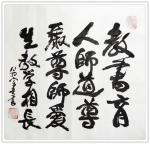 教書育
人師道尊
嚴尊師愛
生教学相長